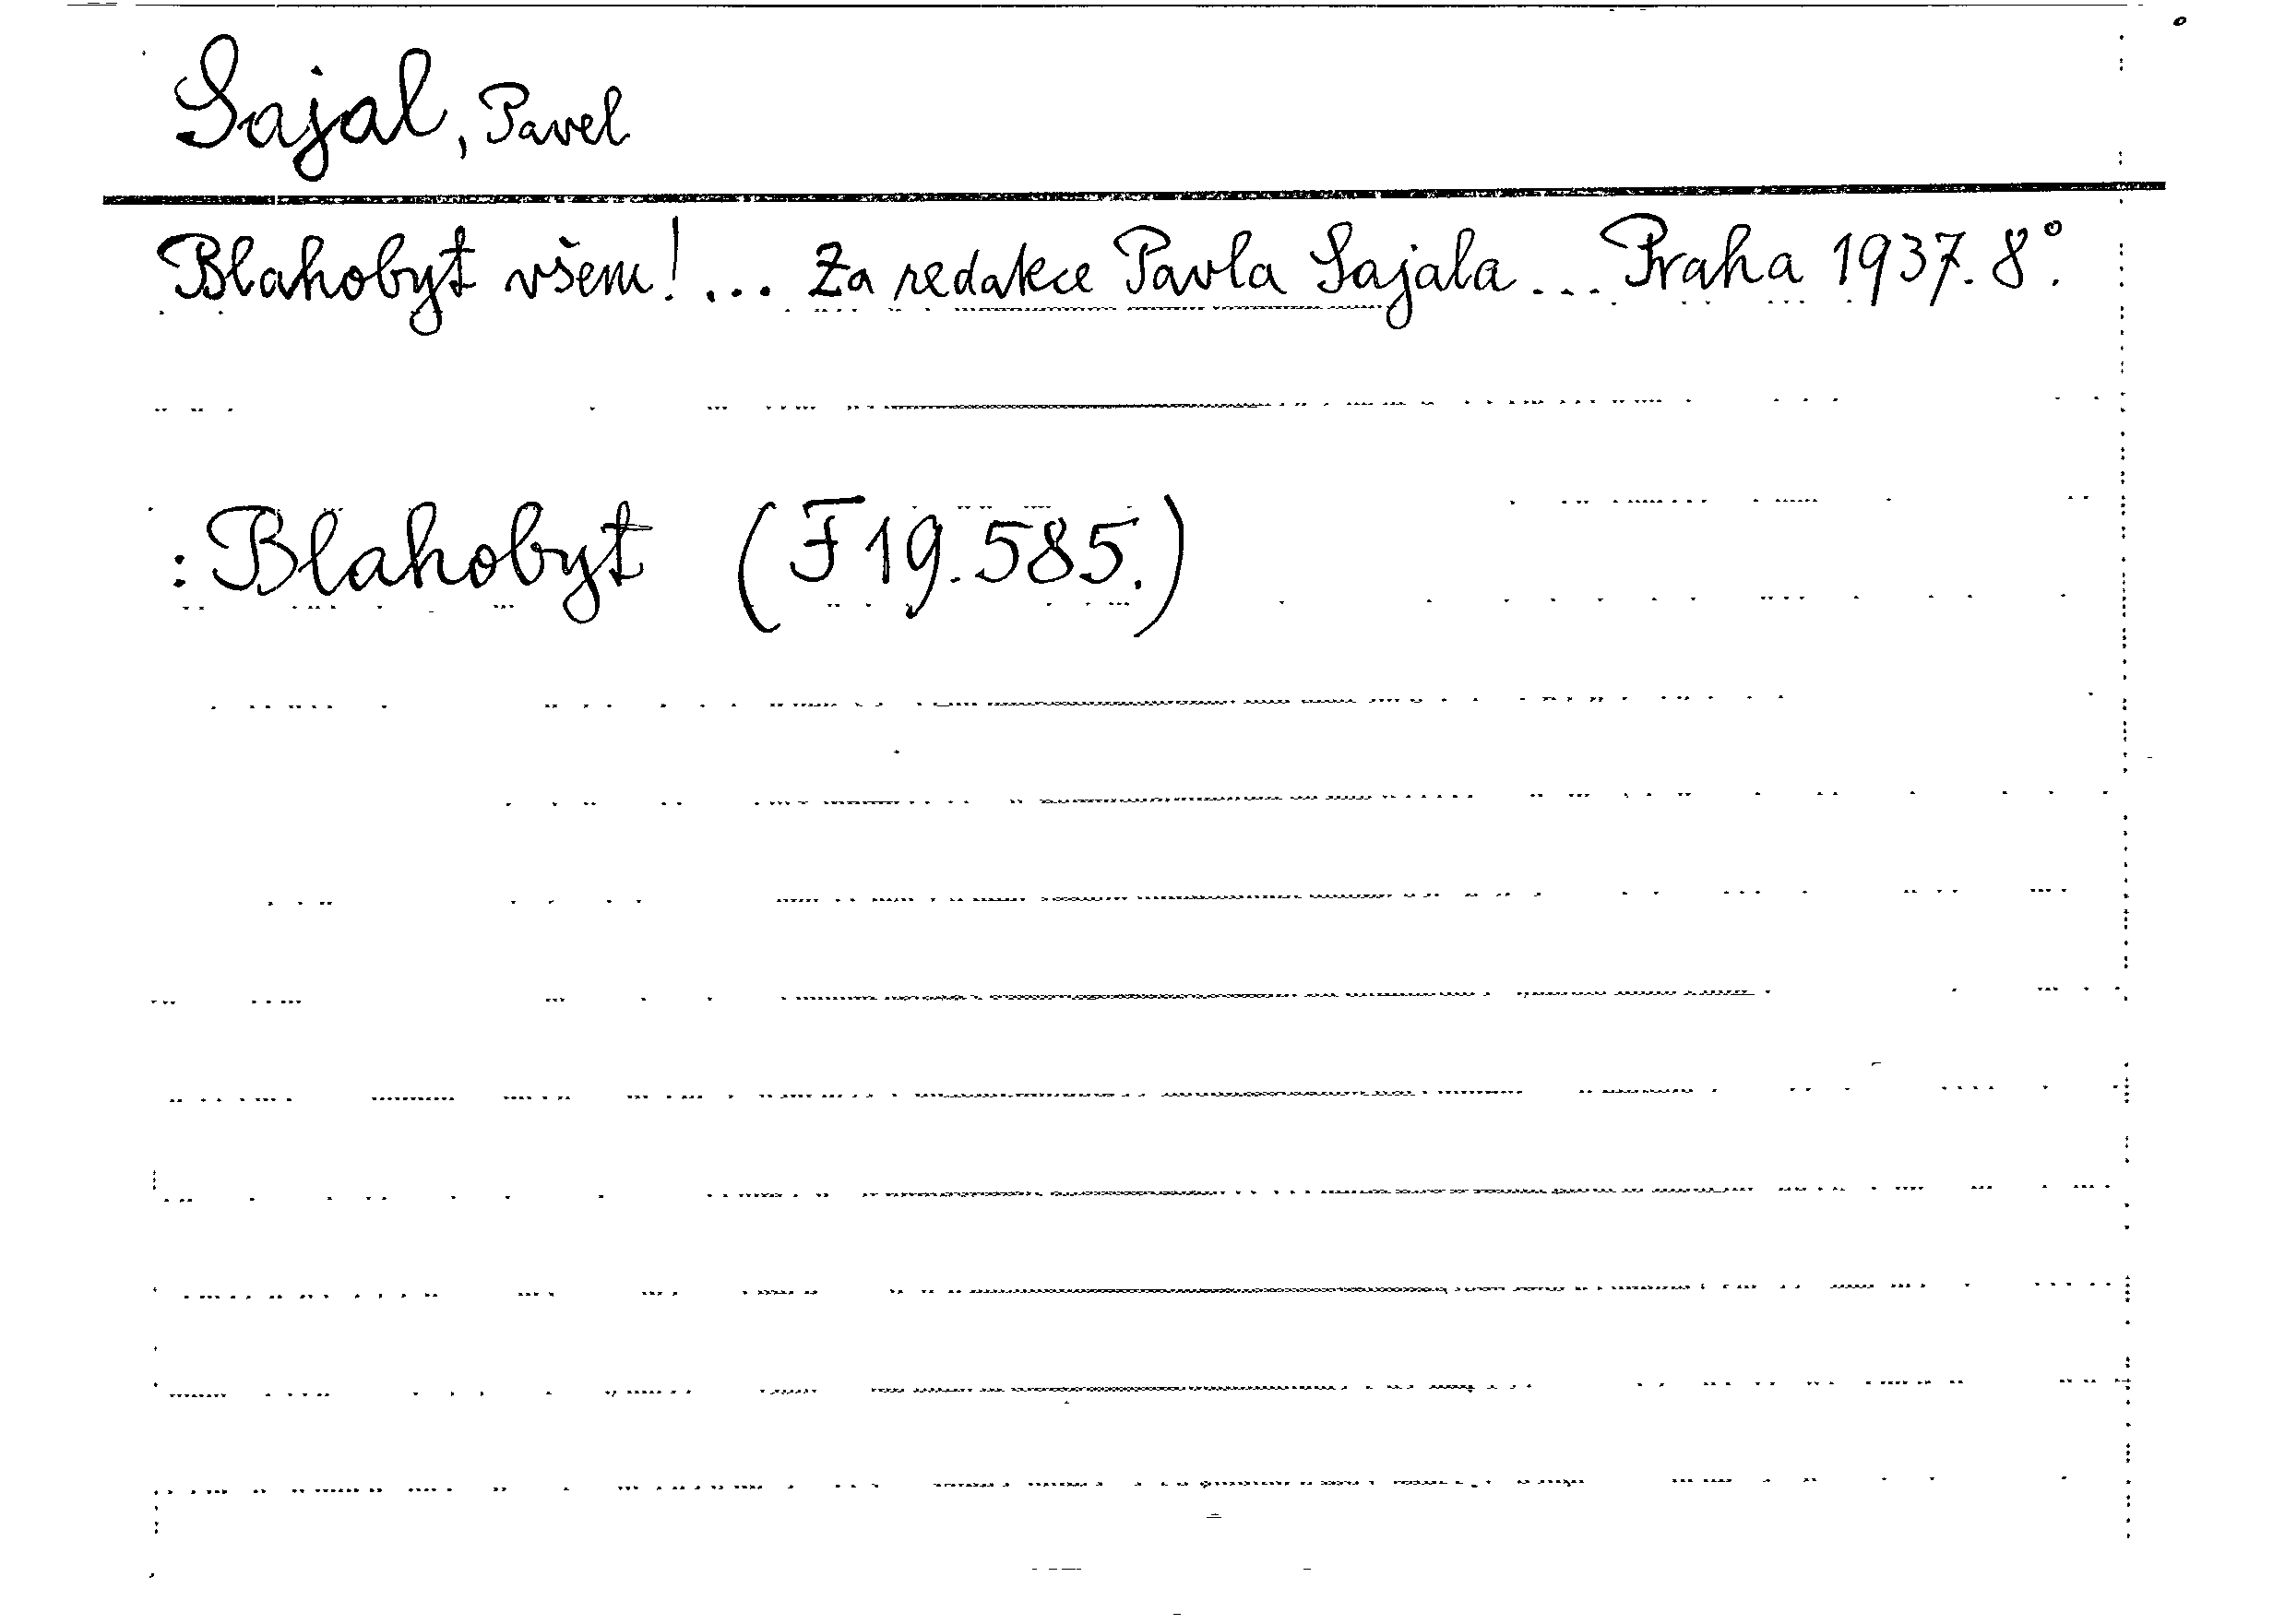 Sajal, Pavel
Blahobyt všem!... Za redakce Pavla Sajala... Praha 1937. 8°.
: Blahobyt (F 19.585.)